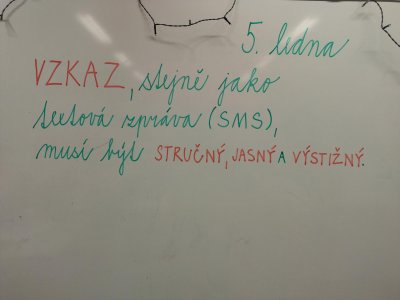 5. ledna
VZKAZ, stejně jako
textová zpráva (SMS),
musí být STRUČNÝ, JASNÝ A VÝSTIŽNÝ.